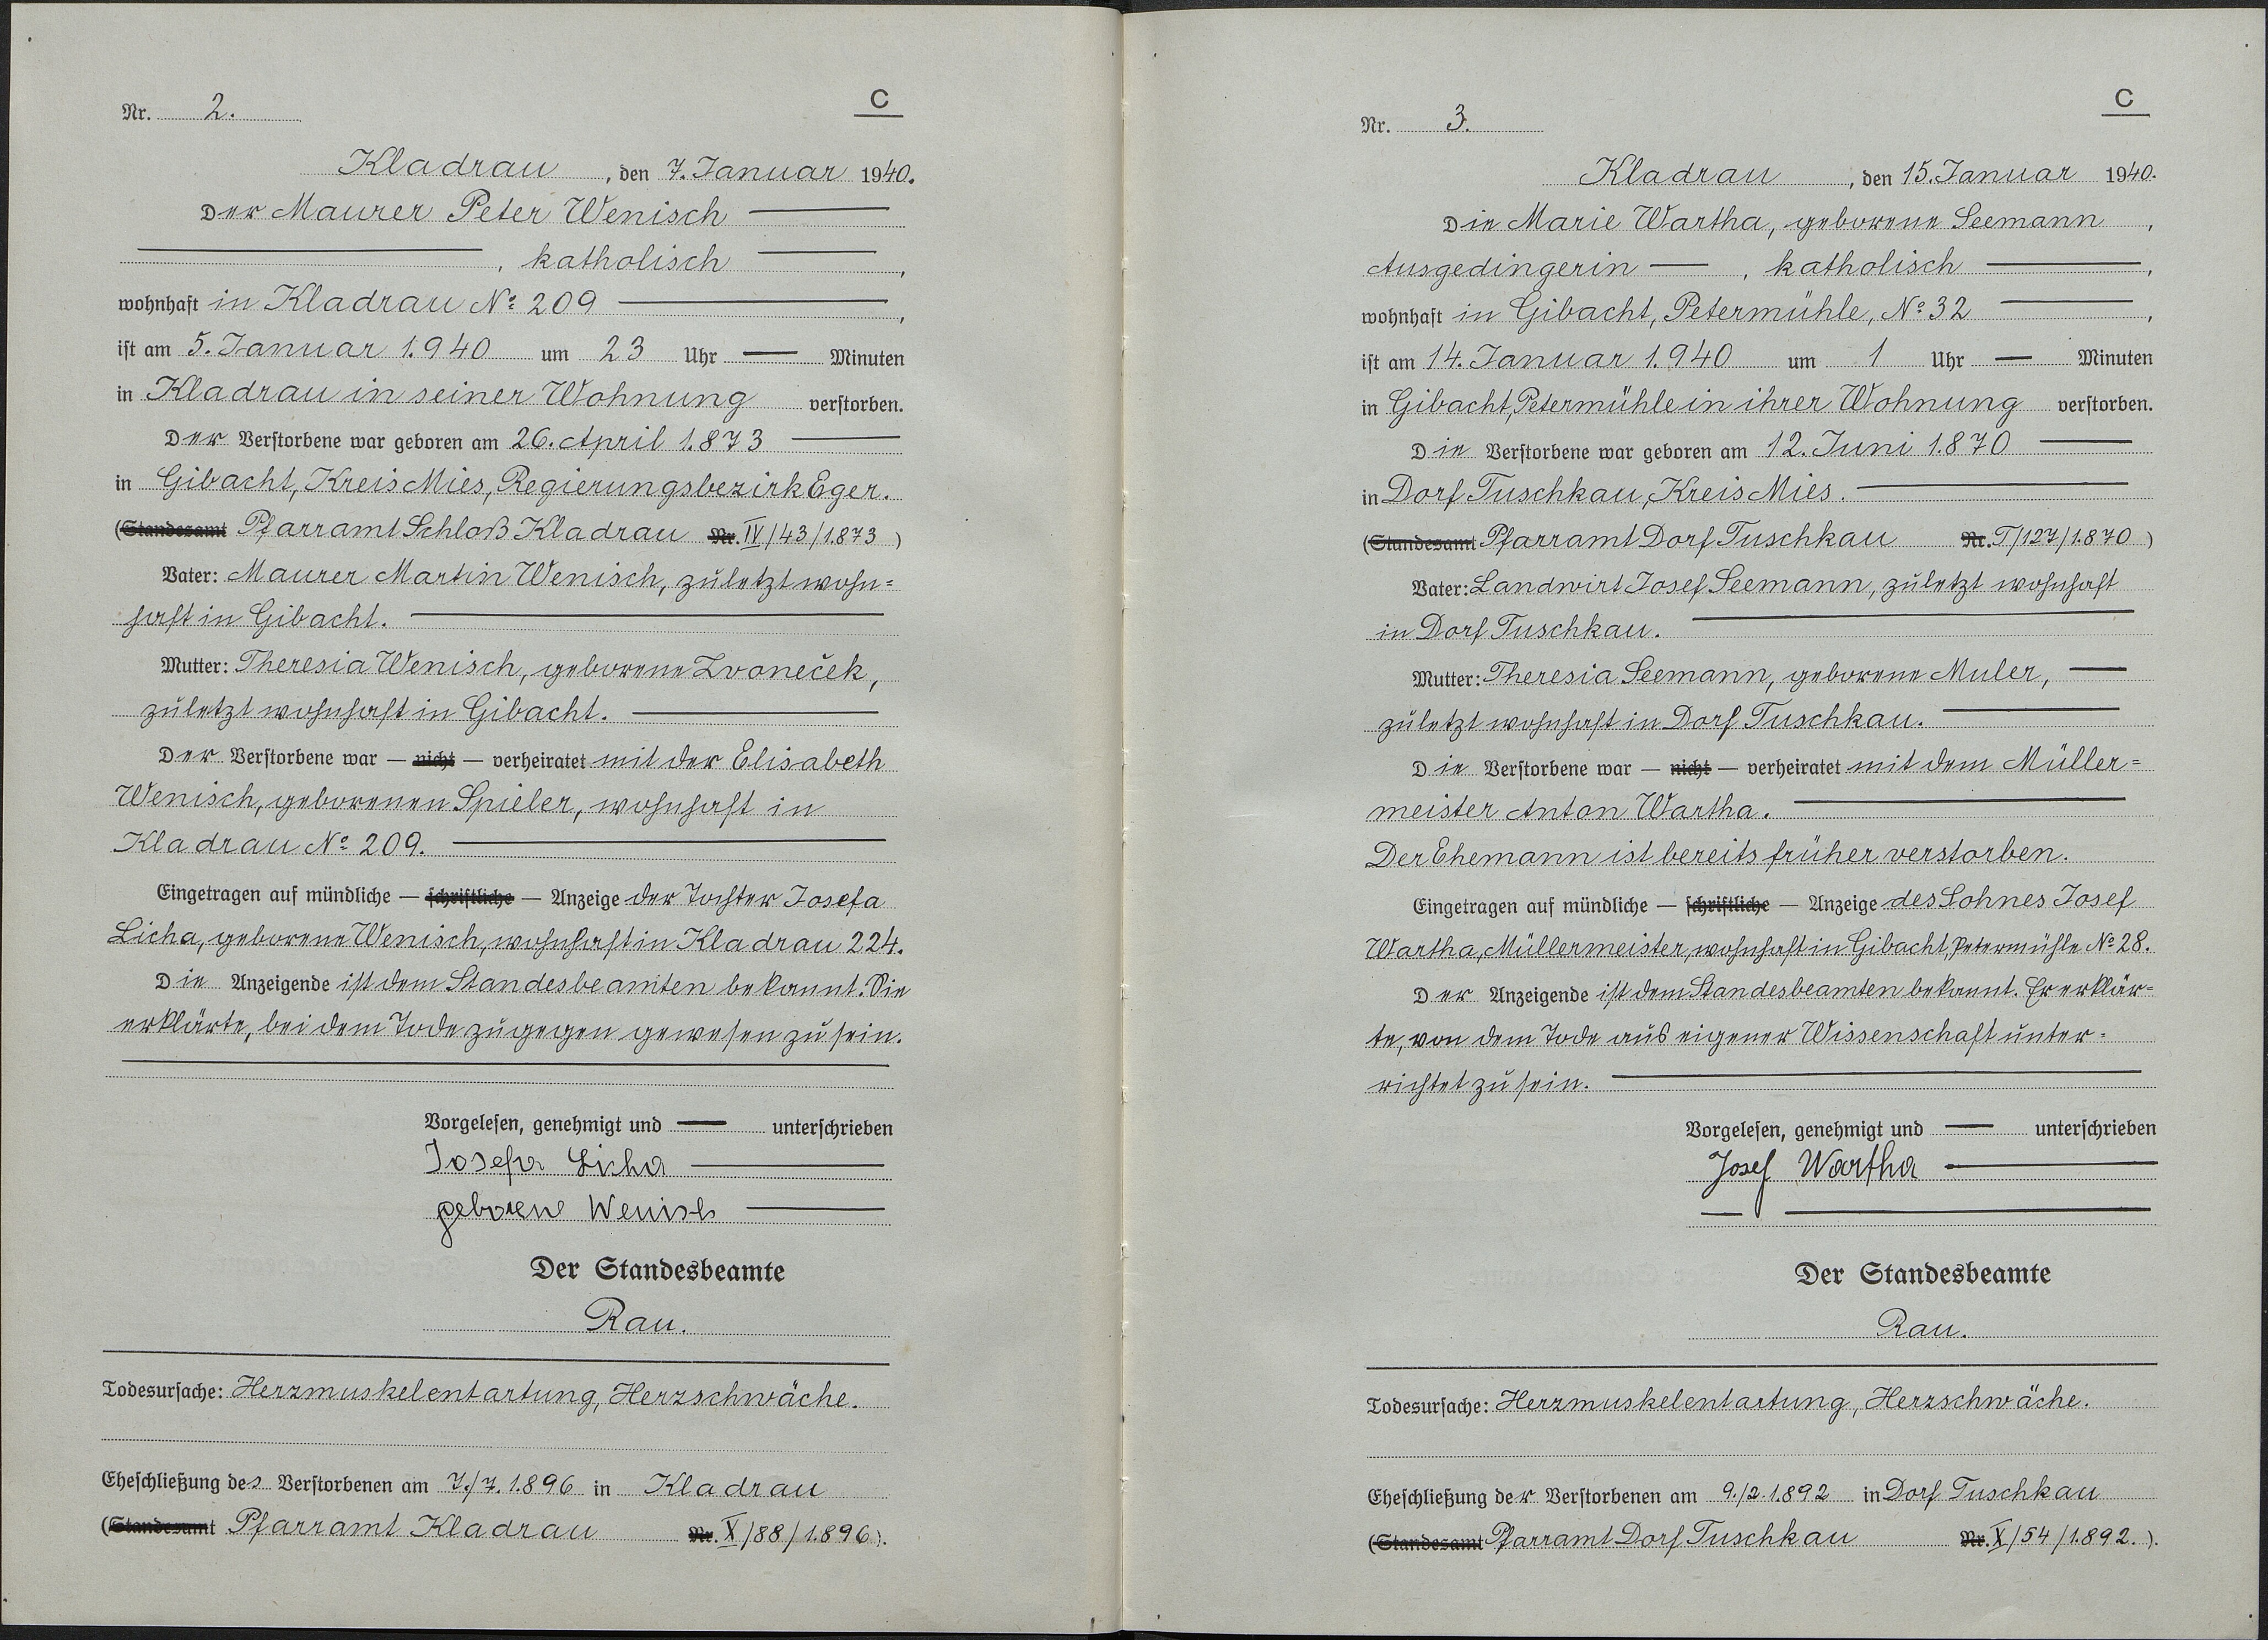 Nr. 2.
C
Kladrau, den 7. Januar 1940.
Der Maurer Peter Wenisch
, katholisch ,
wohnhaft in Kladrau No 209 ,
ist am 5. Januar 1.940 um 23 Uhr — Minuten
in Kladrau in seiner Wohnung verstorben.
Der Verstorbene war geboren am 26. April 1.873
in Gibacht, Kreis Mies, Regierungsbezirk Eger.
(Standesamt Pfarramt Schloß Kladrau Nr. IV/43/1.873)
Vater: Maurer Martin Wenisch, zuletzt wohn=
haft in Gibacht.
Mutter: Theresia Wenisch, geborene Zvoneček,
zuletzt wohnhaft in Gibacht.
Der Verstorbene war — nicht — verheiratet mit der Elisabeth
Wenisch, geborenen Spieler, wohnhaft in
Kladrau No 209.
Eingetragen auf mündliche — schriftliche — Anzeige der Tochter Josefa
Licha, geborene Wenisch, wohnhaft in Kladrau 224.
Die Anzeigende ist dem Standesbeamten bekannt. Sie
erklärte, bei dem Tode zugegen gewesen zu sein.
Vorgelesen, genehmigt und — unterschrieben
Josefa Licha
geborene Wenisch
Der Standesbeamte
Rau.
Todesursache: Herzmuskelentartung, Herzschwäche.
Eheschließung des Verstorbenen am 7./7. 1.896 in Kladrau
(Standesamt Pfarramt Kladrau Nr. X/88/1.896).
Nr. 3.
C
Kladrau, den 15. Januar 1940.
Die Marie Wartha, geborene Seemann,
Ausgedingerin — , katholisch ,
wohnhaft in Gibacht, Petermühle, No 32 ,
ist am 14. Januar 1.940 um 1 Uhr — Minuten
in Gibacht, Petermühle in ihrer Wohnung verstorben.
Die Verstorbene war geboren am 12. Juni 1.870
in Dorf Tuschkau, Kreis Mies.
(Standesamt Pfarramt Dorf Tuschkau Nr. T/127/1.870)
Vater: Landwirt Josef Seemann, zuletzt wohnhaft
in Dorf Tuschkau.
Mutter: Theresia Seemann, geborene Muler,
zuletzt wohnhaft in Dorf Tuschkau.
Die Verstorbene war — nicht — verheiratet mit dem Müller=
meister Anton Wartha.
Der Ehemann ist bereits früher verstorben.
Eingetragen auf mündliche — schriftliche — Anzeige des Sohnes Josef
Wartha, Müllermeister, wohnhaft in Gibacht, Petermühle No 28.
Der Anzeigende ist dem Standesbeamten bekannt. Er erklär=
te, von dem Tode aus eigener Wissenschaft unter=
richtet zu sein.
Vorgelesen, genehmigt und — unterschrieben
Josef Wartha
Der Standesbeamte
Rau.
Todesursache: Herzmuskelentartung, Herzschwäche.
Eheschließung der Verstorbenen am 9./2. 1.892 in Dorf Tuschkau
(Standesamt Pfarramt Dorf Tuschkau Nr. X/54/1.892.).